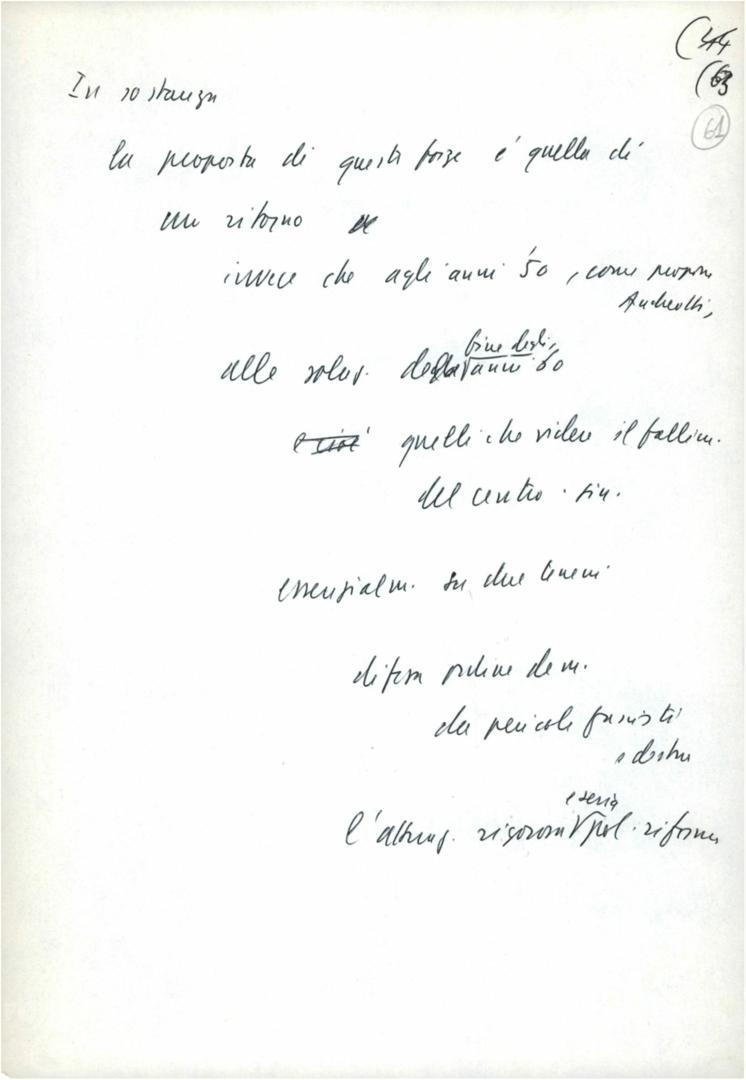 (44
(63
61
In sostanza
la proposta di questi forze é quella di
un ritorno
invece che agli anni '50, come propone
Andreotti,
fine degli
alle soluz. degli anni '60
e cioé quelli che videro il fallim.
del centro-sin.
essenzialm. su due
difesa ordine dem.
da pericoli fascisti
e destra
e seria
rigorosa pol. riforme